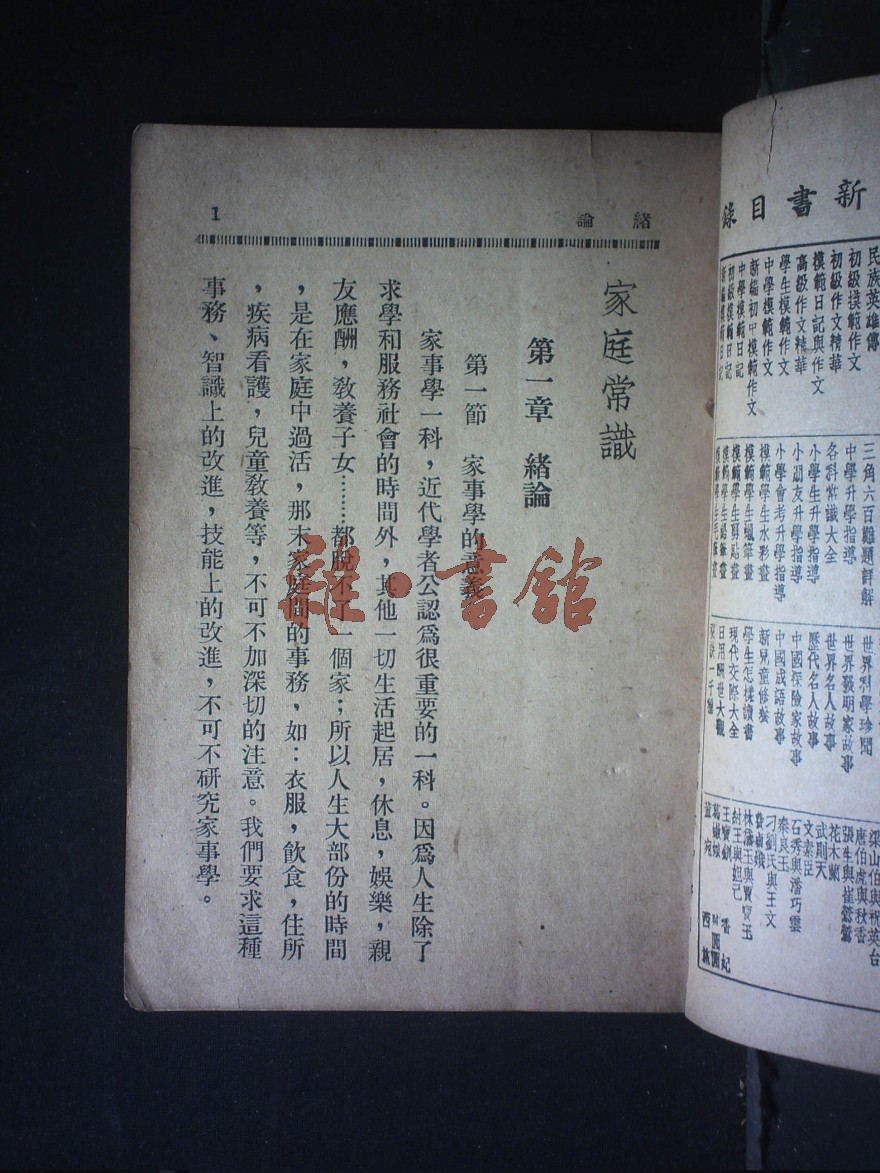 新書目錄
民族英雄傳
初級模範作文
初級作文精華
模範日記與作文
高級作文精華
學生模範作文
中學模範作文
新編初中模範作文
中學模範日記
初級模範日記
三角六百難題詳解
中學升學指導
各科常識大全
小學生升學指導
小朋友升學指導
小學會考升學指導
模範學生水彩畫
模範學生蠟筆畫
模範學生剪貼畫
模範學生鉛筆畫
世界科學珍聞
世界發明家故事
世界名人故事
歷代名人故事
中國探險家故事
中國成語故事
新兒童修養
學生怎樣讀書
現代交際大全
日用酬世大觀
梁山伯與祝英台
唐伯虎與秋香
張生與崔鶯鶯
花木蘭
武則天
文素臣
石秀與潘巧雲
秦良玉
刁劉氏與王文
林黛玉與賈寶玉
紂王與妲己
香妃
緒論
1
家庭常識
第一章 緒論
第一節 家事學的意義
家事學一科，近代學者公認爲很重要的一科。因爲人生除了
求學和服務社會的時間外，其他一切生活起居，休息，娛樂，親
友應酬，敎養子女………都脫不了一個家；所以人生大部份的時間
，是在家庭中過活，那末家庭間的事務，如：衣服，飲食，住所
，疾病看護，兒童敎養等，不可不加深切的注意。我們要求這種
事務、智識上的改進，技能上的改進，不可不研究家事學。
雜·書館